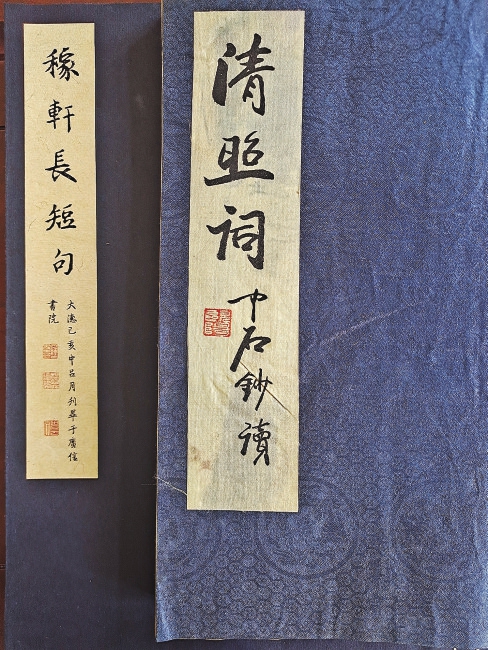 清照词
中石鈔讀
稼軒長短句
大德己亥中吕月刋畢于廣信
書院